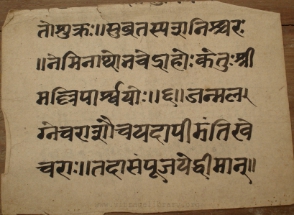 तोशुक्रः॥सुव्रतस्पशनिश्चरः
॥नेमिनाथोनवेद्राहोःकेतुःश्री
मल्लिपार्श्वयोः॥६॥जन्मल
ग्नेचराशौचयदापीमंतिखे
चराः॥तदासंपूजयेद्धीमान्॥